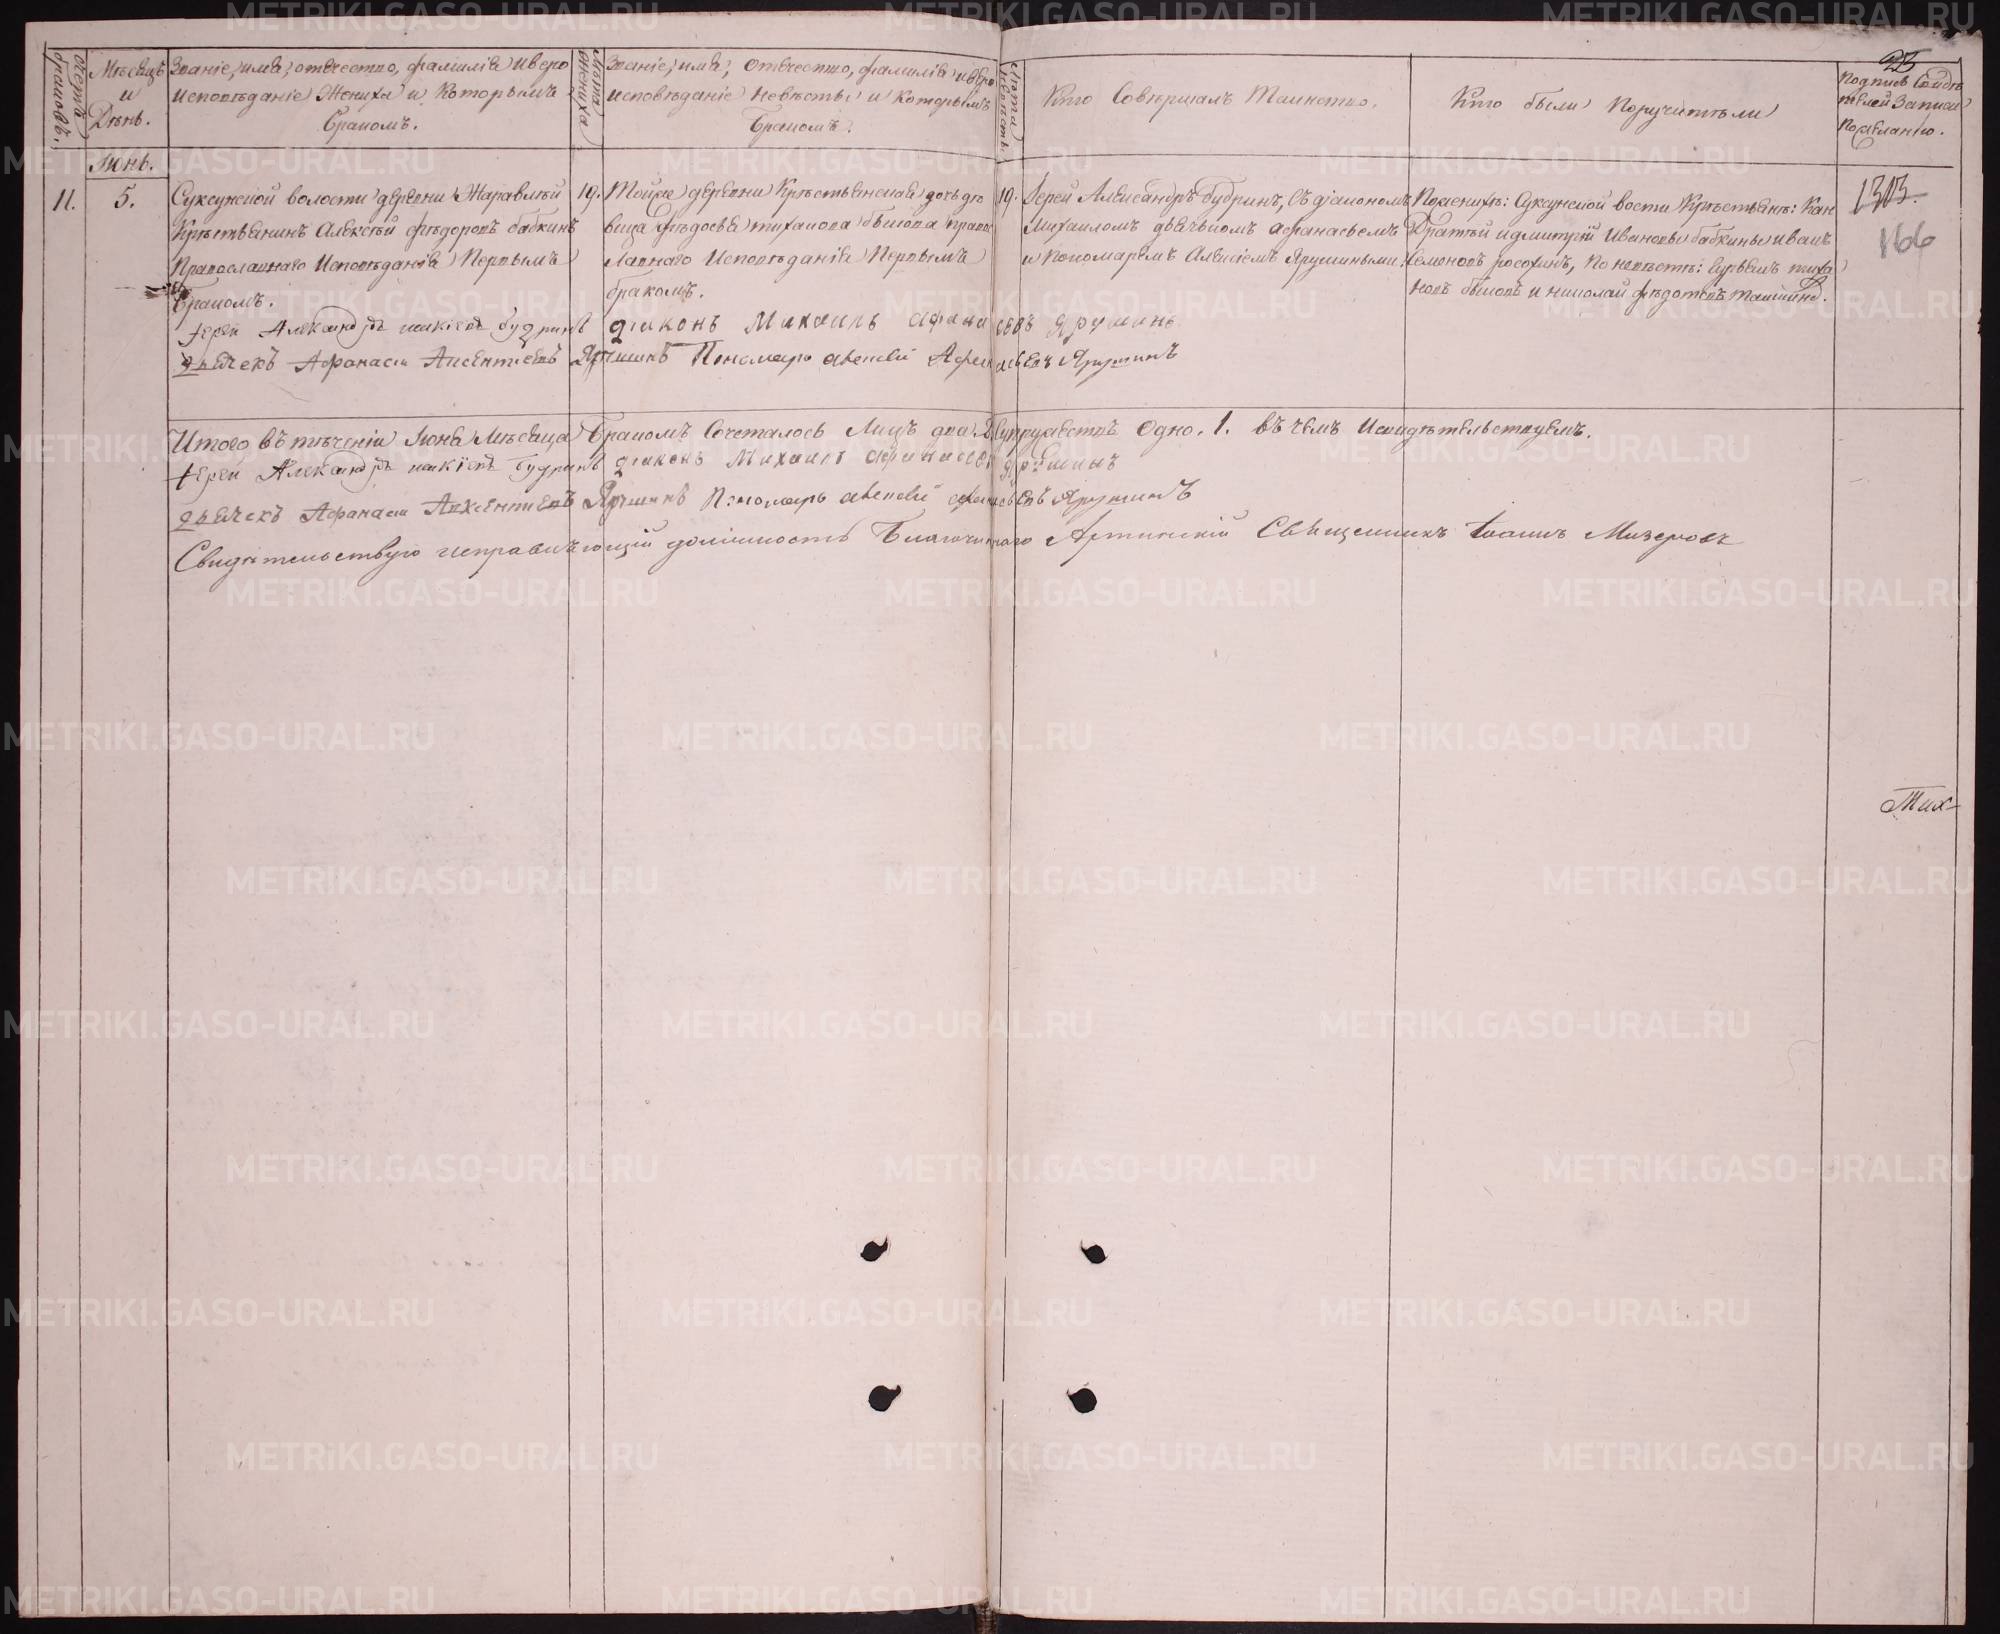 Счетъ браковъ.
Мѣсяцъ и День.
Званіе, имя, отечество, фамилія и вѣроисповѣданіе Жениха и Которымъ бракомъ.
Лѣта жениха
Званіе, имя, отечество, фамилія и вѣроисповѣданіе Невѣсты и которымъ бракомъ.
Лѣта невѣсты.
Кто Совершалъ Таинство.
Кто были Поручители
Подпись Свидѣтелей Записи По желанію.
Іюнь.
11.
5.
Суксунской волости деревни Журавлей
Крѣстьянинъ Алексѣй Федоровъ бабкинъ
Православнаго Исповѣданія Первымъ
бракомъ.
19.
Тойже деревни Крѣстьянская дочь дѣ
вица Федосья тиханова бышова право
славнаго Исповѣданія Первымъ
бракомъ.
19.
Іерей Александръ будринъ, съ діакономъ
Михаиломъ дьячкомъ афанасьемъ
и Пономаремъ Алексѣемъ Ярушиными.
По женихѣ: Суксунской вости Крѣстьянѣ:
и дмитрій Ивановы бабкины иванъ
семеновъ росохинъ, По невѣстѣ: Гурьянъ тиха
новъ бышовъ и николай федотовъ
1313.
166
Іерей Александръ будринъ діаконъ Михаилъ Афанасьевъ Ярушинъ
дьячекъ Афанасій Авксентіевъ Ярушинъ Пономарь Алексѣй Афанасьевъ Ярушинъ
Итого въ теченіи Іюня Мѣсяца бракомъ Сочеталось Лицъ два Супружествъ Одно. 1. въ чемъ И свидѣтельствуемъ.
Іерей Александръ будринъ діаконъ Михаилъ Афанасьевъ Ярушинъ
дьячекъ Афанасій Авксентіевъ Ярушинъ Пономарь Алексѣй Афанасьевъ Ярушинъ
Свидѣтельствую исправляющій должность Благочиннаго Артинскій Священникъ Іоаннъ Мизеровъ
Тих
METRIKI.GASO-URAL.RU